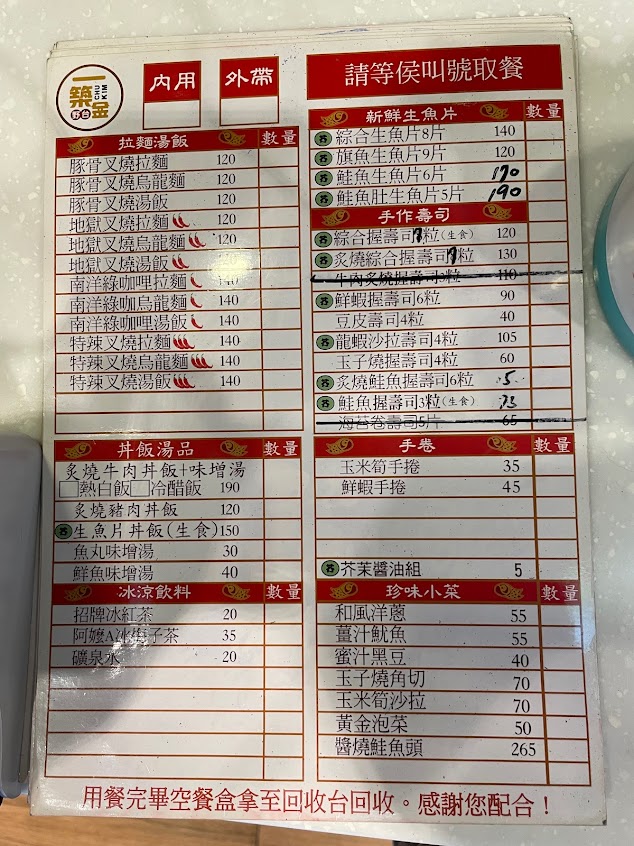 一築金
CHU KIM
野台
內用
外帶
請等侯叫號取餐
拉麵湯飯 數量
豚骨叉燒拉麵 120
豚骨叉燒烏龍麵 120
豚骨叉燒湯飯 120
地獄叉燒拉麵 120
地獄叉燒烏龍麵 120
地獄叉燒湯飯 120
南洋綠咖哩拉麵 140
南洋綠咖哩烏龍麵 140
南洋綠咖哩湯飯 140
特辣叉燒拉麵 140
特辣叉燒烏龍麵 140
特辣叉燒湯飯 140
丼飯湯品 數量
炙燒牛肉丼飯+味增湯
熱白飯 冷醋飯 190
炙燒豬肉丼飯 120
芥 生魚片丼飯(生食) 150
魚丸味增湯 30
鮮魚味增湯 40
冰涼飲料 數量
招牌冰紅茶 20
阿嬤A冰梅子茶 35
礦泉水 20
新鮮生魚片 數量
芥 綜合生魚片8片 140
芥 旗魚生魚片9片 120
芥 鮭魚生魚片6片 170
芥 鮭魚肚生魚片5片 190
手作壽司
芥 綜合握壽司7粒(生食) 120
芥 炙燒綜合握壽司7粒 130
牛肉炙燒握壽司3粒 110
芥 鮮蝦握壽司6粒 90
豆皮壽司4粒 40
芥 龍蝦沙拉壽司4粒 105
玉子燒握壽司4粒 60
芥 炙燒鮭魚握壽司6粒
芥 鮭魚握壽司3粒(生食)
海苔卷壽司5片 65
手卷 數量
玉米筍手捲 35
鮮蝦手捲 45
芥 芥茉醬油組 5
珍味小菜 數量
和風洋蔥 55
薑汁魷魚 55
蜜汁黑豆 40
玉子燒角切 70
玉米筍沙拉 70
黃金泡菜 50
醬燒鮭魚頭 265
用餐完畢空餐盒拿至回收台回收。感謝您配合！